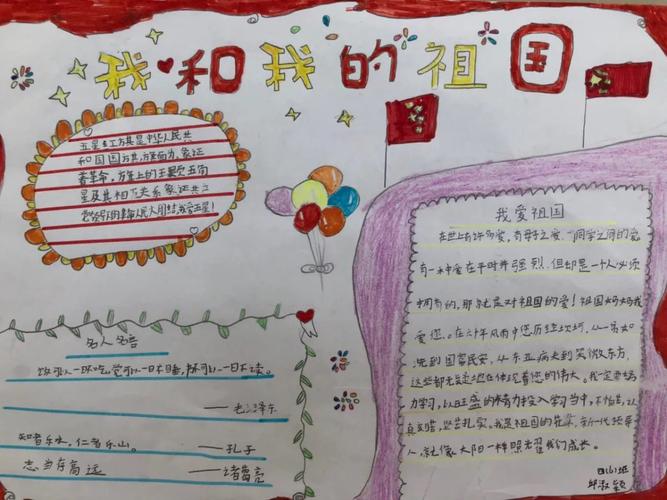 我和我的祖国
五星红旗是中华人民共
和国国旗,旗面为 象征
着革命,旗上的 五角
星及其相 关系象征共
党领 人民大团结,我爱五星!
名人名言
饭可以一 不吃,觉可以一日不睡, 可以一日不读。
——毛泽东
知者乐水,仁者乐山。 ——孔子
志当存高远 ——诸葛亮
我爱祖国
在世上有许多爱,有母子之爱、同学之间的爱
有一 爱在平时并 强烈,但却是一个人必须
拥有的,那就是对祖国的爱!祖国妈妈我
爱您。在 年风雨中您历经坎坷,从一 如
洗到国富民安,从东亚病夫到笑傲东方,
这些都无 您的伟大。我一定要努
力学习,以旺盛的精力投入学习当中,不怕苦,认
真 ,坚 扎实。我是祖国的花朵,新一代接班
人,就像太阳一样照耀我们成长。
四 班
邱淑颖